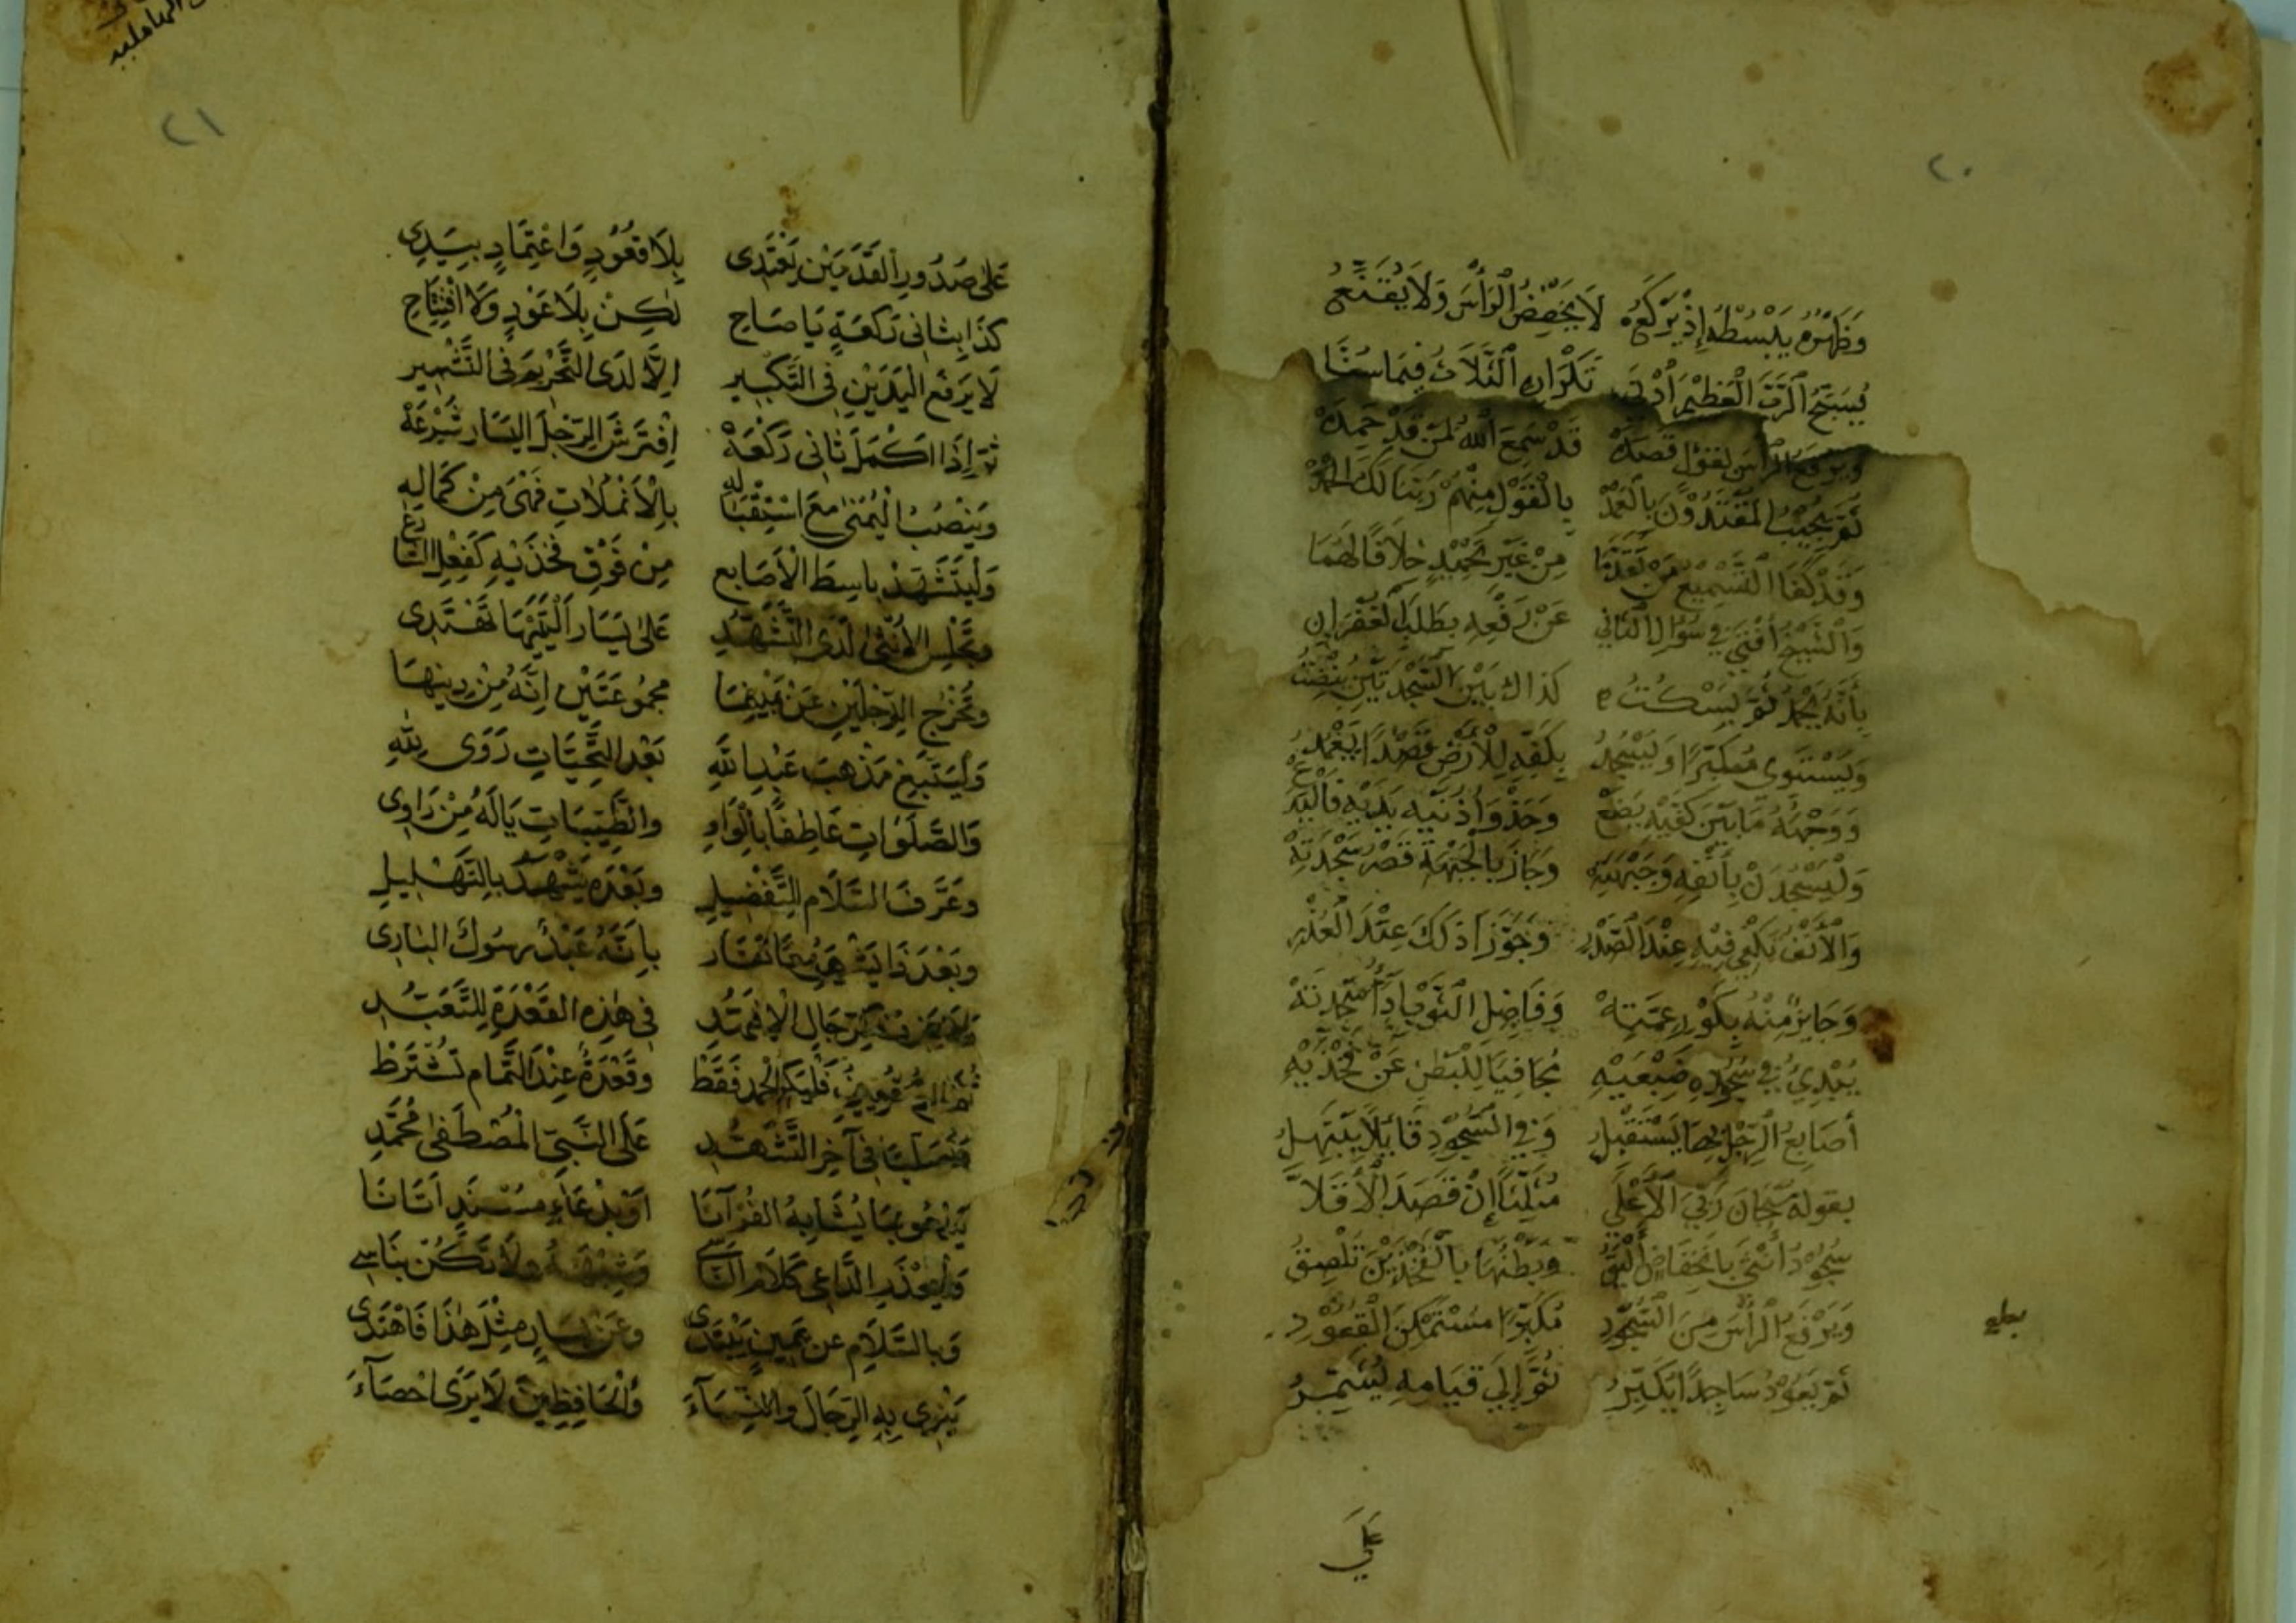 ٢٠
وَظَهْرُهُ يَبْسُطُهُ إِذْ يَرْكَعُ لَا يَخْفِضُ الرَّأْسَ وَلَا يُقَنِّعُ
يُسَبِّحُ الرَّبَّ الْعَظِيْمَ أَدْنَى تَكْرَارِهِ الثَّلَاثُ فِيمَا سُنَّا
وَيَرْفَعُ الرَّأْسَ بِقَوْلٍ قَصَدَهْ قَدْ سَمِعَ اللهُ لِمَنْ قَدْ حَمِدَهْ
ثُمَّ يُجِيْبُ الْمُقْتَدُوْنَ بِالْعَمْدْ بِالْقَوْلِ مِنْهُمْ رَبَّنَا لَكَ الْحَمْدْ
وَقَدْ كَفَا التَّسْمِيْعُ مِنْ تَقَدَّمَا مِنْ غَيْرِ تَحْمِيْدٍ خِلَافًا لَهُمَا
وَالشَّيْخُ أَفْتَى فِي سُؤَالِ الثَّانِي عَنْ رَفْعِهِ بِطَلَبِ الْغُفْرَانِ
بِأَنَّهُ يَحْمَدُ ثُمَّ يَسْكُتُ كَذَاكَ بَيْنَ السَّجْدَتَيْنِ يُنْصِتُ
وَيَسْتَوِى مُكَبِّرًا وَيَسْجُدُ بِكَفِّهِ لِلْأَرْضِ قَصْدًا يَعْمِدُ
وَوَجْهَهُ مَا بَيْنَ كَفَّيْهِ يَضَعْ وَحَذْوَ أُذْنَيْهِ يَدَيْهِ
وَلْيَسْجُدَنْ بِأَنْفِهِ وَجَبْهَتِهْ وَجَازَ بِالْجَبْهَةِ قَصْرُ سَجْدَتِهْ
وَالْأَنْفُ يَكْفِي فِيْهِ عِنْدَ الصَّدْرِ وَجَوَّزَا ذَلِكَ عِنْدَ الْعُذْرِ
وَجَايِزٌ مِنْهُ بِكَوْرِ عِمَّتِهْ وَفَاضِلِ الثَّوْبِ
يُبْدِيُ فِي سُجُوْدِهِ ضَبْعَيْهِ مُجَافِيًا لِلْبَطْنِ عَنْ فَخْذَيْهِ
أَصَابِعُ الرِّجْلِ بِهَا يَسْتَقْبِلُ وَفِي السُّجُوْدِ قَائِلًا يَبْتَهِلُ
بِقَوْلِهِ سُبْحَانَ رَبِّيَ الْأَعْلَى مُثَلِّثًا إِنْ قَصَدَ الْأَقَلَّا
سُجُوْدُ أُنْثَى بِانْخِفَاضٍ وَبَطْنُهَا بِالْفَخْذَيْنِ تَلْصِقُ
وَيَرْفَعُ الرَّأْسَ مِنَ السُّجُوْدِ مُكَبِّرًا مُسْتَمْكِنَ الْقُعُوْدِ
ثُمَّ يَعُوْدُ سَاجِدًا يُكَبِّرُ ثُمَّ إِلَى قِيَامِهِ يُشَمِّرُ
عَلَى
٢١
عَلَى صُدُورِ الْقَدَمَيْنِ يَعْتَدِى بِلَا قُعُوْدٍ وَاعْتِمَادٍ بِيَدِى
كَذَا بِثَانِى رَكْعَةٍ يَا صَاحِ لكِنْ بِلَا عَوْذٍ وَلَا افْتِتَاحِ
لَا يَرْفَعُ الْيَدَيْنِ فِى التَّكْبِيرِ اِلَّا لَدَى التَّحْرِيْمِ فِى التَّشْمِيرِ
ثُمَّ إِذَا اكْمَلَ ثَانِى رَكْعَهْ اِفْتَرَشَ الرِّجْلَ الْيَسَارَ شِرْعَهْ
وَيَنْصُبُ الْيُمْنَى مَعَ اسْتِقْبَالِهِ بِالْأَنْمُلَاتِ فَهْىَ مِنْ كَمَالِهِ
وَلْيَتَشَهَّدْ بَاسِطَ الْأَصَابِعِ مِنْ فَوْقِ فَخْذَيْهِ كَفِعْلِ الشَّارِعِ
وَتَجْلِسُ الْأُنْثَى لَدَى التَّشَهُّدِ عَلَى يَسَارِ اَلْيَتَيْهَا تَقْتَدِى
وَتُخْرِجُ الرِّجْلَيْنِ عَنْ يَمِيْنِهَا مَجْمُوعَتَيْنِ اِنَّهُ مِنْ دِينِهَا
وَلْيَتَّبِعْ مَذْهَبَ عَبْدِ اللهِ بَعْدَ التَّحِيَّاتِ رَوَى لِلّهِ
وَالصَّلَوَاتِ عَاطِفًا بِالْوَاوِ وَالطَّيِّبَاتِ يَالَهُ مِنْ رَاوِى
وَعَرَّفَ السَّلَامَ لِلتَّفْضِيلِ وَبَعْدَهُ يَشْهَدُ بِالتَّهْلِيلِ
وَبَعْدَ ذَا يَشْهَدُ بِاَنَّهُ عَبْدٌ رَسُولُ الْبَارِى
فِى هذِهِ الْقَعْدَةِ لِلتَّعَبُّدِ
فَلْيَكُ الْحَمْدُ فَقَطْ وَقَعْدَةٌ عِنْدَ التَّمَامِ تُشْتَرَطْ
فِى آخِرِ التَّشَهُّدِ عَلَى النَّبِىِّ الْمُصْطَفَى مُحَمَّدِ
يَدْعُو بِمَا يُشَابِهُ الْقُرْآنَا اَوْ بِدُعَاءٍ مُسْنَدٍ اَتَانَا
وَلْيَحْذَرِ الدَّاعِى كَلَامَ النَّاسِ وَشِبْهَهُ وَلَا تَكُنْ بِنَاسِى
وَبِالسَّلَامِ عَنْ يَمِينٍ يَبْتَدِى وَعَنْ يَسَارٍ مِثْلَ هذَا فَاهْتَدِى
يَنْوِى بِهِ الرِّجَالَ وَالنِّسَاءَ وَالْحَافِظِينَ لَا يَرَى احْصَاءَ